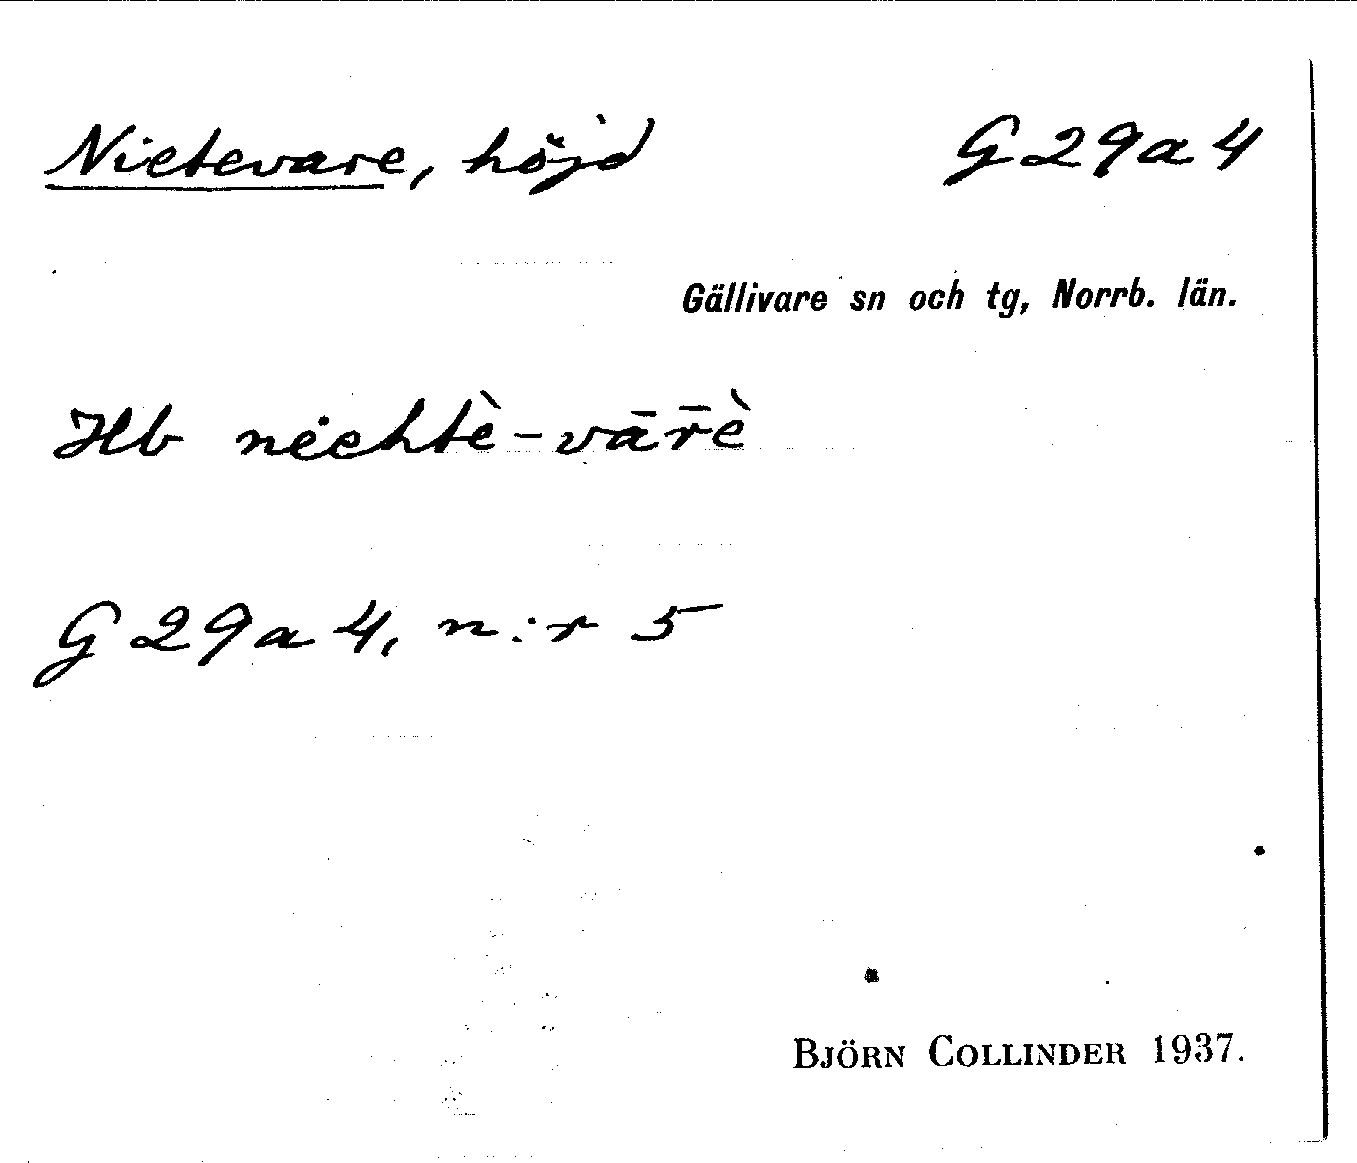 Nietevare, höjd G29a4
Gällivare sn och tg, Norrb. län.
Hb nėehtè-vār̄è
G29a4, n:r 5
BJÖRN COLLINDER 1937.